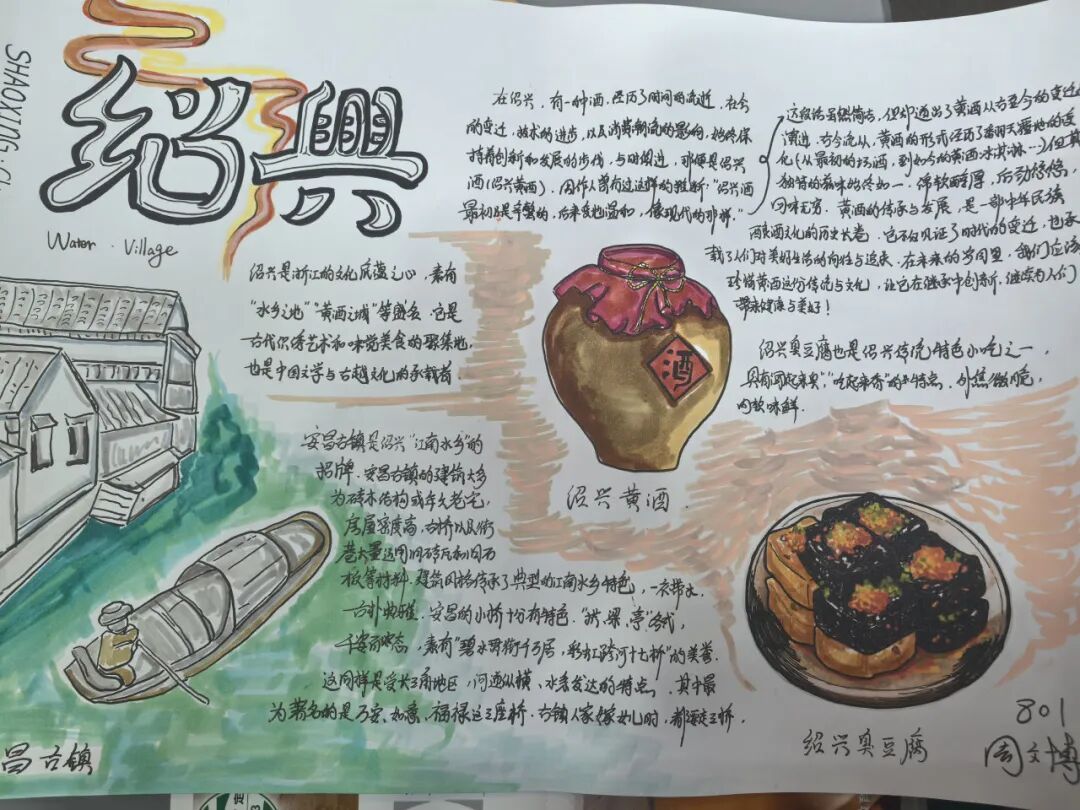 SHAOXING·C
绍興
Water · Village
绍兴是浙江的文化底蕴之心，素有
“水乡之地”“黄酒之城”等盛名。它是
古代 艺术和味觉美食的聚集地，
也是中国文学与古越文化的承载者
在绍兴，有一种酒，经历了时间的流逝，社会
的变迁，技术的进步，以及消费潮流的影响，始终保
持着创新和发展的步伐，与时俱进，那便是绍兴
酒（绍兴黄酒）。周作人曾有过这样的推断：“绍兴酒
最初是辛蟹的，后来变地温和，像现代的那样。”
这段话虽然简洁，但却道出了黄酒从古至今的变迁
演进。古今流从，黄酒的形式经历了翻天覆地的变
化（从最初的坊酒，到如今的黄酒冰淇淋…）但其
独特的滋味始终如一，绵软醇厚，后劲悠悠，
回味无穷。黄酒的传承与发展，是一部中华民族
酒文化的历史长卷。它不仅见证了时代的变迁，也承
载了人们对美好生活的向往与追求。在未来的岁月里，我们应该
珍惜黄酒这份传统与文化，让它在继承中创新，继续为人们
带来健康与美好！
绍兴臭豆腐也是绍兴传统特色小吃之一，
具有“闻起来臭”，“吃起来香”的特点。外焦微脆，
内软味鲜.
酒
绍兴黄酒.
安昌古镇是绍兴“江南水乡”的
招牌。安昌古镇的建筑大多
为砖木结构或年久老宅，
房屋密度高，古桥以及街
巷大量运用 砖瓦和 石
板等材料。建筑风格传承了典型的江南水乡特色，一衣带水，
古朴典雅。安昌的小桥十分有特色。“拱、梁、亭”各式，
千姿百态，素有“碧水贯街千万居，彩虹跨河十七桥”的美誉.
这同样是受长三角地区，河道纵横、水系发达的特点。其中最
为著名的是万安、如意、福禄这三座桥。古镇人家嫁女儿时，都要走三桥，
绍兴臭豆腐
801
周文博
昌古镇